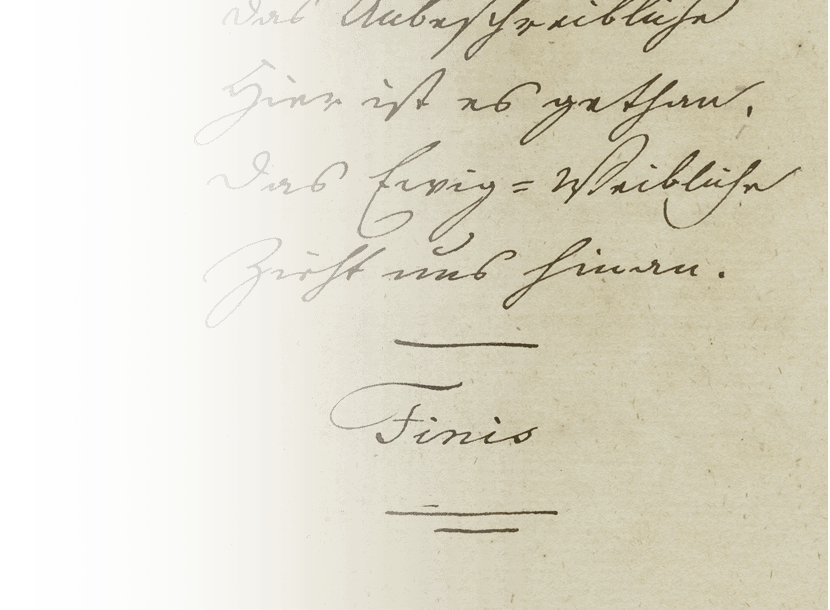 Das Unbeschreibliche
Hier ist es gethan.
Das Ewig=Weibliche
Zieht uns hinan.
Finis